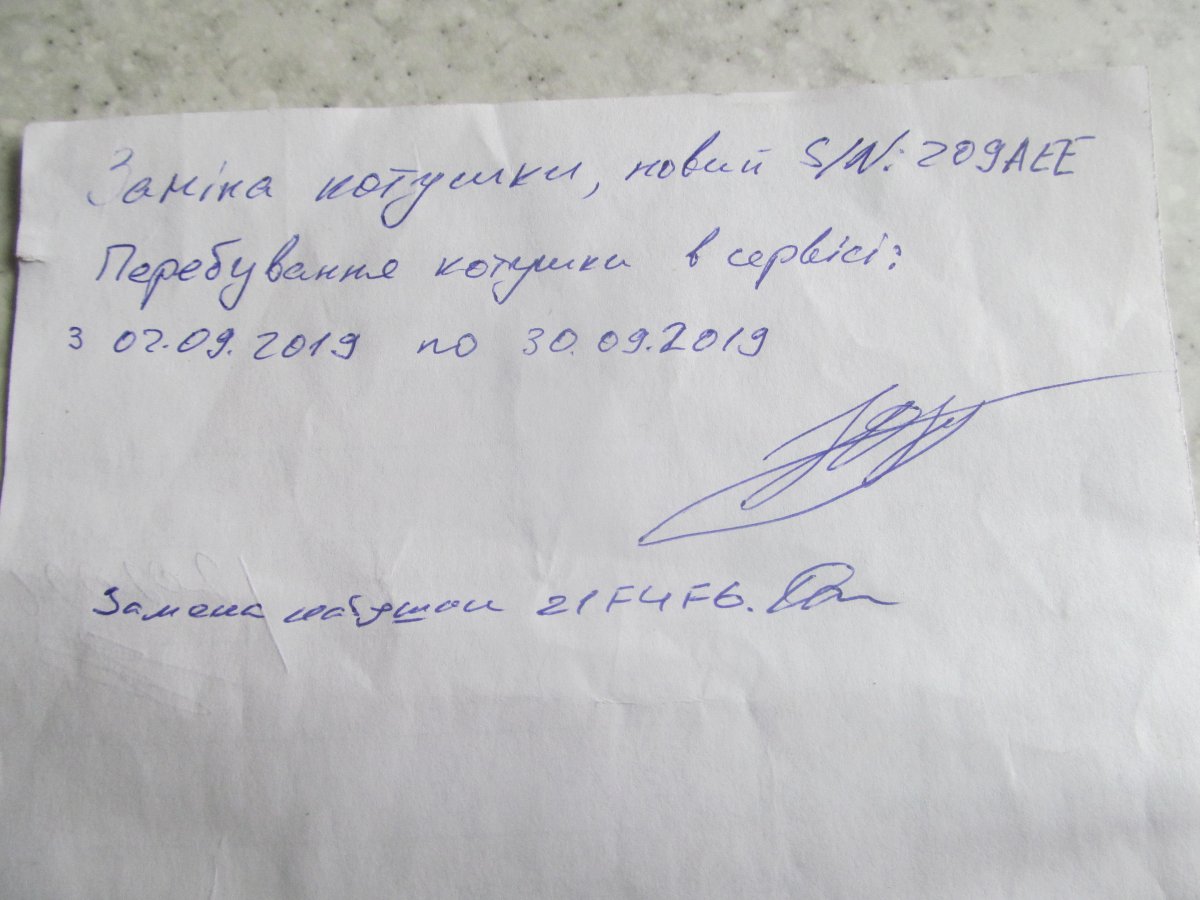 Заміна котушки, новий S/N: 209AEE
Перебування котушки в сервісі:
з 02.09.2019 по 30.09.2019
Замена катушки 21F4F6.